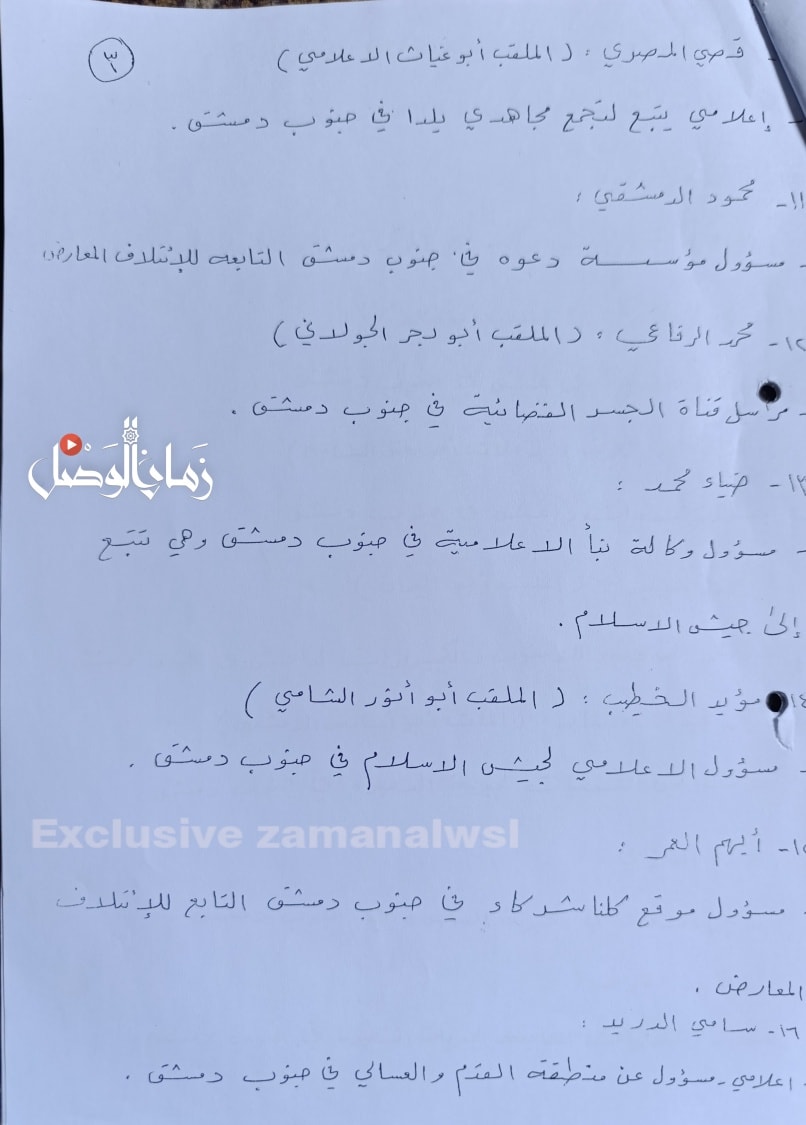 ٣
- قصي المصري : ( الملقب أبو غياث الاعلامي )
- إعلامي يتبع لتجمع مجاهدي يلدا في جنوب دمشق .
١١- محمود الدمشقي :
- مسؤول مؤسسة دعوه في جنوب دمشق التابعه للإئتلاف المعارض
١٢- محمد الرفاعي : ( الملقب أبو دجر الجولاني )
- مراسل قناة الجسر الفضائية في جنوب دمشق .
زمان الوصل
١٣- ضياء محمد :
- مسؤول وكالة نبأ الاعلامية في جنوب دمشق وهي تتبع
إلى جيش الاسلام .
١٤- مؤيد الخطيب : ( الملقب أبو أنور الشامي )
- مسؤول الاعلامي لجيش الاسلام في جنوب دمشق .
Exclusive zamanalwsl
١٥- أيهم العمر :
- مسؤول موقع كلنا شركاء في جنوب دمشق التابع للإئتلاف
المعارض .
١٦- سامي الدريد :
- اعلامي - مسؤول عن منطقة القدم والعسالي في جنوب دمشق .